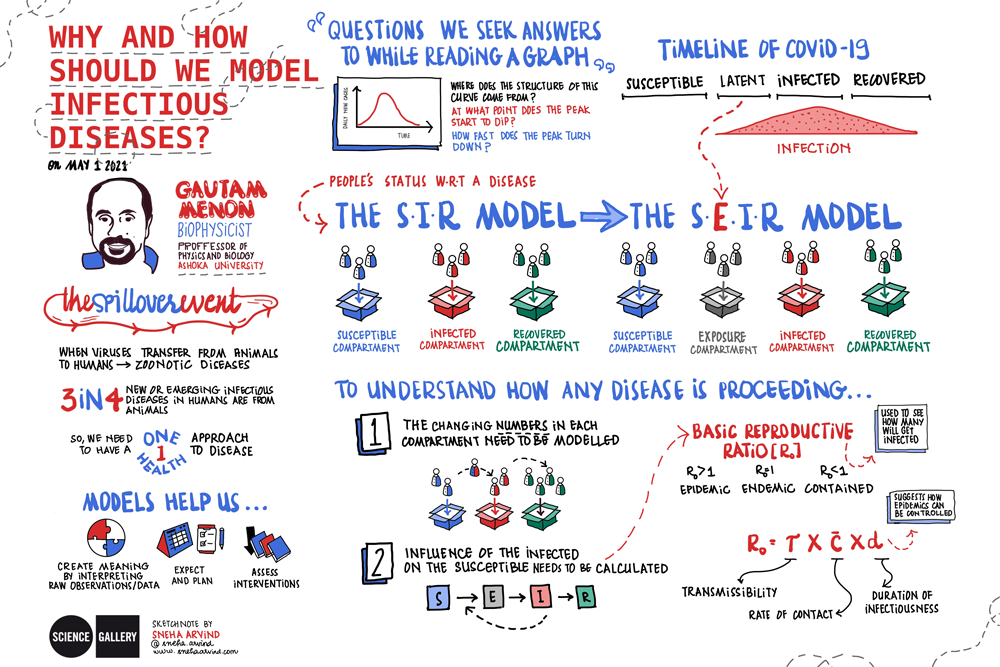 WHY AND HOW
SHOULD WE MODEL
INFECTIOUS
DISEASES?
on MAY 1 2021
GAUTAM
MENON
BIOPHYSICIST
PROFFESSOR OF
PHYSICS AND BIOLOGY
ASHOKA UNIVERSITY
the spillover event
WHEN VIRUSES TRANSFER FROM ANIMALS
TO HUMANS → ZOONOTIC DISEASES
3 IN 4
NEW OR EMERGING INFECTIOUS
DISEASES IN HUMANS ARE FROM
ANIMALS
SO, WE NEED
TO HAVE A
ONE
1
HEALTH
APPROACH
TO DISEASE
MODELS HELP US...
CREATE MEANING
BY INTERPRETING
RAW OBSERVATIONS/DATA
EXPECT
AND PLAN
ASSESS
INTERVENTIONS
SCIENCE
GALLERY
SKETCHNOTE BY
SNEHA ARVIND
@ sneha.arvind
www.snehaarvind.com
QUESTIONS WE SEEK ANSWERS
TO WHILE READING A GRAPH
DAILY NEW CASES
TIME
WHERE DOES THE STRUCTURE OF THIS
CURVE COME FROM?
AT WHAT POINT DOES THE PEAK
START TO DIP?
HOW FAST DOES THE PEAK TURN
DOWN?
TIMELINE OF COVID-19
SUSCEPTIBLE LATENT INFECTED RECOVERED
INFECTION
PEOPLE'S STATUS W.R.T A DISEASE
THE S.I.R MODEL
THE S.E.I.R MODEL
SUSCEPTIBLE
COMPARTMENT
INFECTED
COMPARTMENT
RECOVERED
COMPARTMENT
SUSCEPTIBLE
COMPARTMENT
EXPOSURE
COMPARTMENT
INFECTED
COMPARTMENT
RECOVERED
COMPARTMENT
TO UNDERSTAND HOW ANY DISEASE IS PROCEEDING...
1
THE CHANGING NUMBERS IN EACH
COMPARTMENT NEED TO BE MODELLED
2
INFLUENCE OF THE INFECTED
ON THE SUSCEPTIBLE NEEDS TO BE CALCULATED
S → E → I → R
BASIC REPRODUCTIVE
RATIO [R₀]
USED TO SEE
HOW MANY
WILL GET
INFECTED
R₀>1 R₀=1 R₀<1
EPIDEMIC ENDEMIC CONTAINED
SUGGESTS HOW
EPIDEMICS CAN
BE CONTROLLED
R₀ = T X C̄ X d
TRANSMISSIBILITY
RATE OF CONTACT
DURATION OF
INFECTIOUSNESS